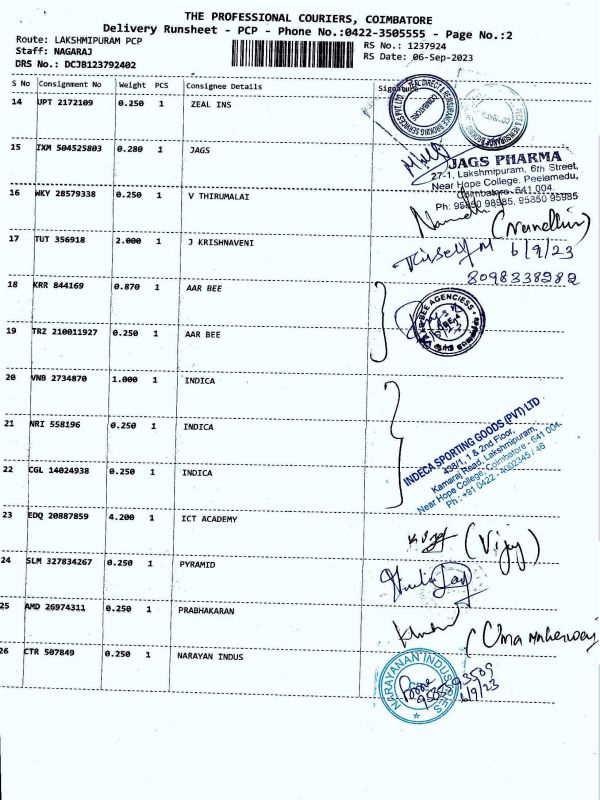 THE PROFESSIONAL COURIERS, COIMBATORE
Delivery Runsheet - PCP - Phone No.:0422-3505555 - Page No.:2
Route: LAKSHMIPURAM PCP
RS No.: 1237924
Staff: NAGARAJ
RS Date: 06-Sep-2023
DRS No.: DCJB123792402
S No Consignment No Weight PCS Consignee Details Signature
14 UPT 2172109 0.250 1 ZEAL INS
15 IXM 504525803 0.280 1 JAGS
JAGS PHARMA
27-1, Lakshmipuram, 6th Street,
Near Hope College, Peelamedu,
Coimbatore - 641 004.
Ph: 95850 98985, 95850 95985
16 WKY 28579338 0.250 1 V THIRUMALAI
(Nandhini)
17 TUT 356918 2.000 1 J KRISHNAVENI
6/9/23
8098338982
18 KRR 844169 0.870 1 AAR BEE
AAR BEE AGENCIESS
19 TRZ 210011927 0.250 1 AAR BEE
20 VNB 2734870 1.000 1 INDICA
21 NRI 558196 0.250 1 INDICA
INDECA SPORTING GOODS (PVT) LTD
438/1, 1 & 2nd Floor,
Kamaraj Road, Lakshmipuram,
Near Hope College, Coimbatore - 641 004.
Ph : +91 0422 - 4002345 / 46
22 CGL 14024938 0.250 1 INDICA
23 EDQ 20887859 4.200 1 ICT ACADEMY
(Vijay)
24 SLM 327834267 0.250 1 PYRAMID
25 AMD 26974311 0.250 1 PRABHAKARAN
(Uma Maheswari
26 CTR 507849 0.250 1 NARAYAN INDUS
NARAYANAN INDUSTRIES
6/9/23